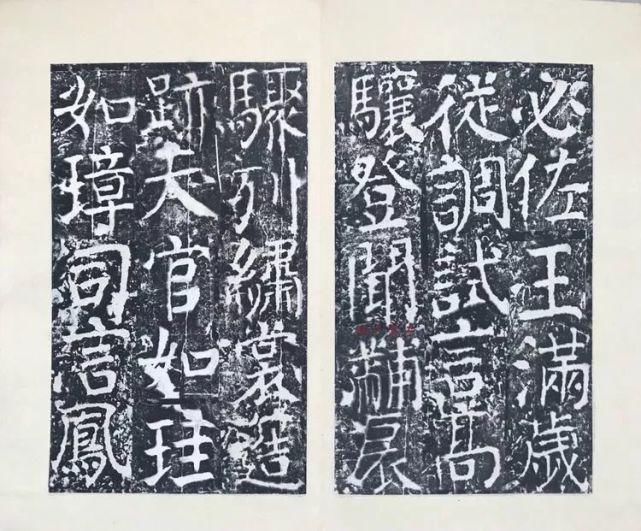 必佐王滿歲
從調試言高
驤登聞黼扆
驟列繡裳造
跡夫官如珪
如璋同言鳳